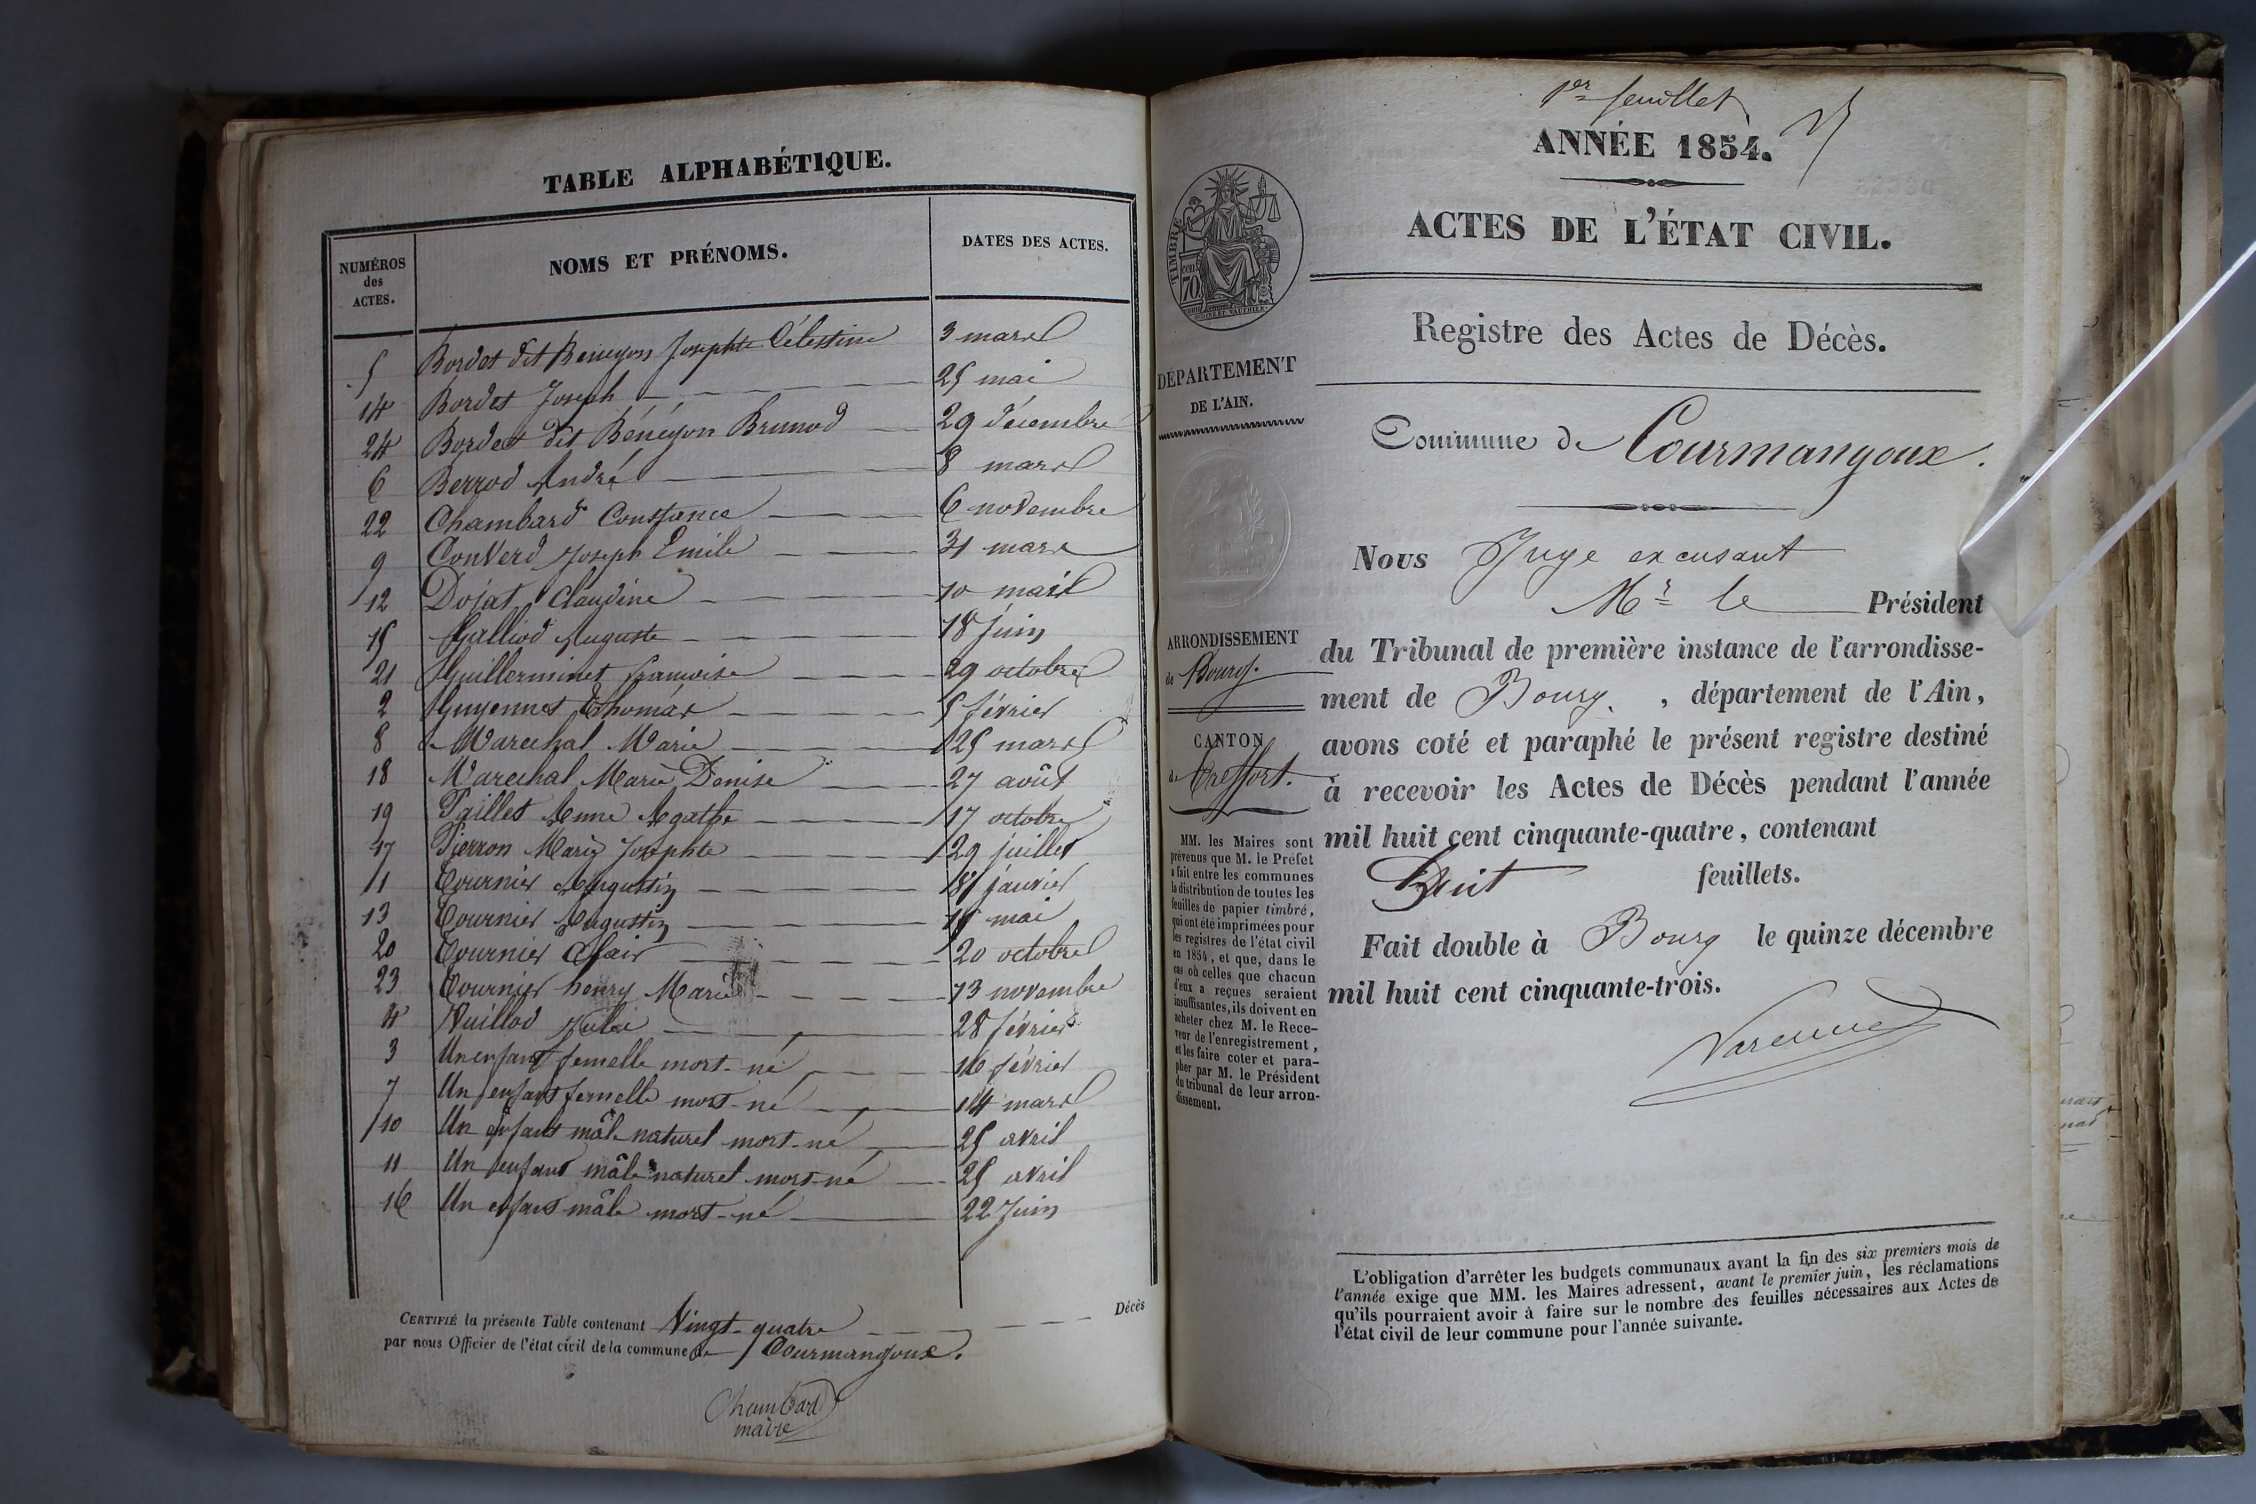 TABLE ALPHABÉTIQUE.
NUMÉROS
des
ACTES.
NOMS ET PRÉNOMS.
DATES DES ACTES.
5 Bordet dit Beneyon Josephte Célestine 3 mars
14 Bordet Joseph 25 mai
24 Bordet dit Bénéyon Brunod 29 décembre
6 Berrod André 8 mars
22 Chambard Constance 6 novembre
9 Converd Joseph Emile 31 mars
12 Dojat Claudine 10 mai
15 Galliod Auguste 18 juin
21 Guillerminet francoise 29 octobre
2 Guyennet Thomas 5 février
8 Marechal Marie 25 mars
18 Marechal Marie Denise 27 août
19 Paillet Anne Agathe 17 octobre
17 Pierron Marie Josephte 29 juillet
1 Tournier Augustin janvier
13 Tournier Augustin mai
20 Tournier Clair 20 octobre
23 Tournier henry Marie 13 novembre
4 Vuillod Julie 28 février
3 Un enfant femelle mort-né 16 février
7 Un enfant femelle mort-né 14 mars
10 Un enfant mâle naturel mort-né 25 avril
11 Un enfant mâle naturel mort-né 25 avril
16 Un enfant mâle mort-né 22 Juin
CERTIFIÉ la présente Table contenant Vingt-quatre Décès
par nous Officier de l'état civil de la commune de Courmangoux.
Chambard
maire
1er feuillet
ANNÉE 1854.
ACTES DE L'ÉTAT CIVIL.
Registre des Actes de Décès.
TIMBRE
70
DÉPARTEMENT
DE L'AIN.
Commune de Courmangoux.
Nous Juge excusant
Mr le Président
du Tribunal de première instance de l'arrondisse-
ment de Bourg, département de l'Ain,
avons coté et paraphé le présent registre destiné
à recevoir les Actes de Décès pendant l'année
mil huit cent cinquante-quatre, contenant
huit feuillets.
Fait double à Bourg le quinze décembre
mil huit cent cinquante-trois.
Varenne
ARRONDISSEMENT
de Bourg.
CANTON
de Treffort.
MM. les Maires sont
prévenus que M. le Préfet
a fait entre les communes
la distribution de toutes les
feuilles de papier timbré,
qui ont été imprimées pour
les registres de l'état civil
en 1854, et que, dans le
cas où celles que chacun
d'eux a reçues seraient
insuffisantes, ils doivent en
acheter chez M. le Rece-
veur de l'enregistrement,
et les faire coter et para-
pher par M. le Président
du tribunal de leur arron-
dissement.
L'obligation d'arrêter les budgets communaux avant la fin des six premiers mois de
l'année exige que MM. les Maires adressent, avant le premier juin, les réclamations
qu'ils pourraient avoir à faire sur le nombre des feuilles nécessaires aux Actes de
l'état civil de leur commune pour l'année suivante.